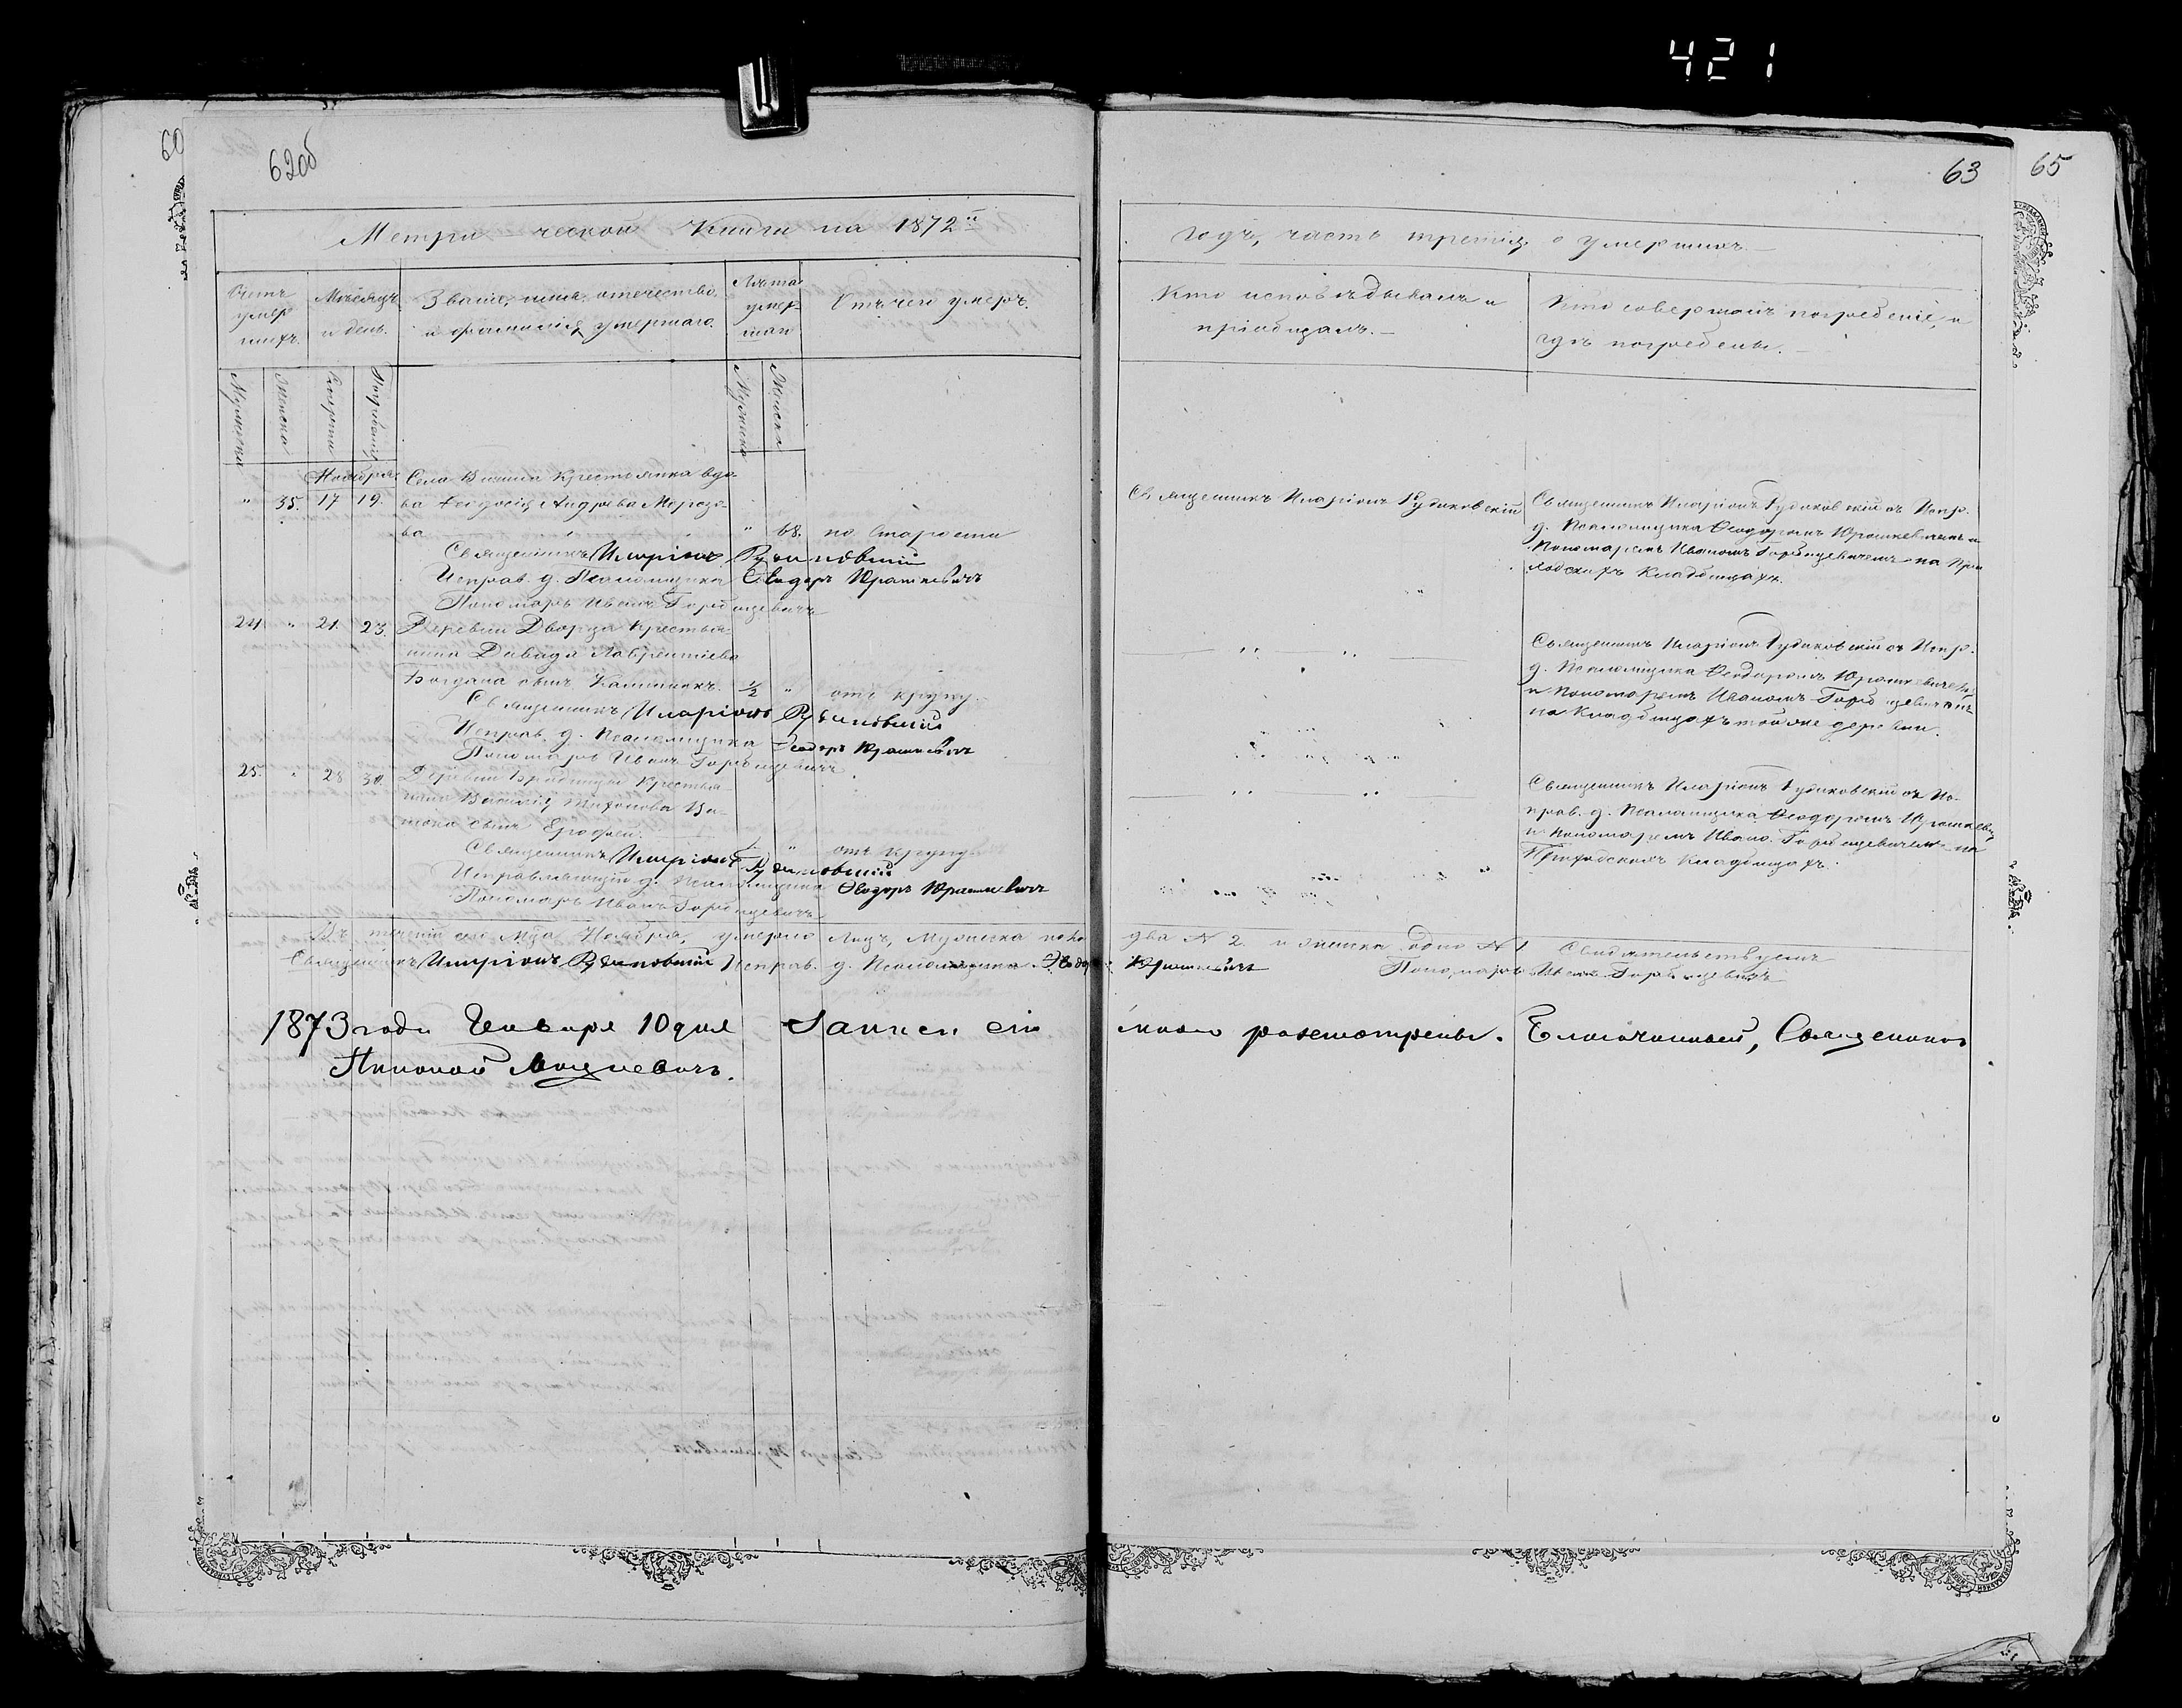 421
60
62об
63
65
Метрической Книги на 1872й
годъ, часть третія, о умершихъ.
Счетъ умершихъ.
Мѣсяцъ и день.
Званіе, имя, отечество, и фамилія умершаго.
Лѣта умершаго
Отъ чего умеръ.
Кто исповѣдывалъ и пріобщалъ.
Кто совершалъ погребеніе, и гдѣ погребены.
Мужеска
Женска
Смерти
Погребенія
Мужеска
Женска
Ноября
Села крестьянка вдо-
" 35. 17 19. ва Феодосія Андреева Мороза-
ва " 68. по старости
Священникъ Иларіонъ Рудаковскій
Исправ. д. Псаломщика Ѳеодоръ Юрашкевичъ
Пономарь Иванъ Горбацевичъ
Священникъ Иларіонъ Рудаковскій
Священникъ Иларіонъ Рудаковскій съ Испр.
д. Псаломщика Ѳеодоромъ Юрашкевичемъ и
Пономаремъ Иваномъ Горбацевичемъ на При
ходскихъ Кладбищахъ.
24 " 21. 23. Деревни Дворца крестья-
нина Давида Лаврентіева
Богдана сынъ Каллиникъ. 1/2 " отъ крупу.
Священникъ Иларіонъ Рудаковскій
Исправ. д. Псаломщика Ѳеодоръ Юрашкевичъ
Пономарь Иванъ Горбацевичъ
" "
Священникъ Иларіонъ Рудаковскій съ Испр.
д. Псаломщика Ѳеодоромъ Юрашкевичемъ
и Пономаремъ Иваномъ Горбацевичемъ
на Кладбищахъ той же деревни.
25. " 28 30. Деревни крестья-
нина Василія Тихонова
сынъ Ерофей. " отъ крупу
Священникъ Иларіонъ Рудаковскій
Исправляющій д. Псаломщика Ѳеодоръ Юрашкевичъ
Пономарь Иванъ Горбацевичъ
" "
Священникъ Иларіонъ Рудаковскій съ Ис-
прав. д. Псаломщика Ѳеодоромъ Юрашкевич
и Пономаремъ Ивано. Горбацевичемъ на
Приходскихъ Кладбищахъ.
Въ теченіи сего Мца Ноября, умерло лицъ, Мужеска пола два N 2. и женска одно N 1 Свидетельствуемъ
Священникъ Иларіонъ Рудаковскій Исправ. д. Псаломщика Ѳеодоръ Юрашкевичъ Пономарь Иванъ Горбацевичъ
1873 года Генваря 10 дня Записи сіи мною разсмотрены. Благочинный, Священникъ
Николай